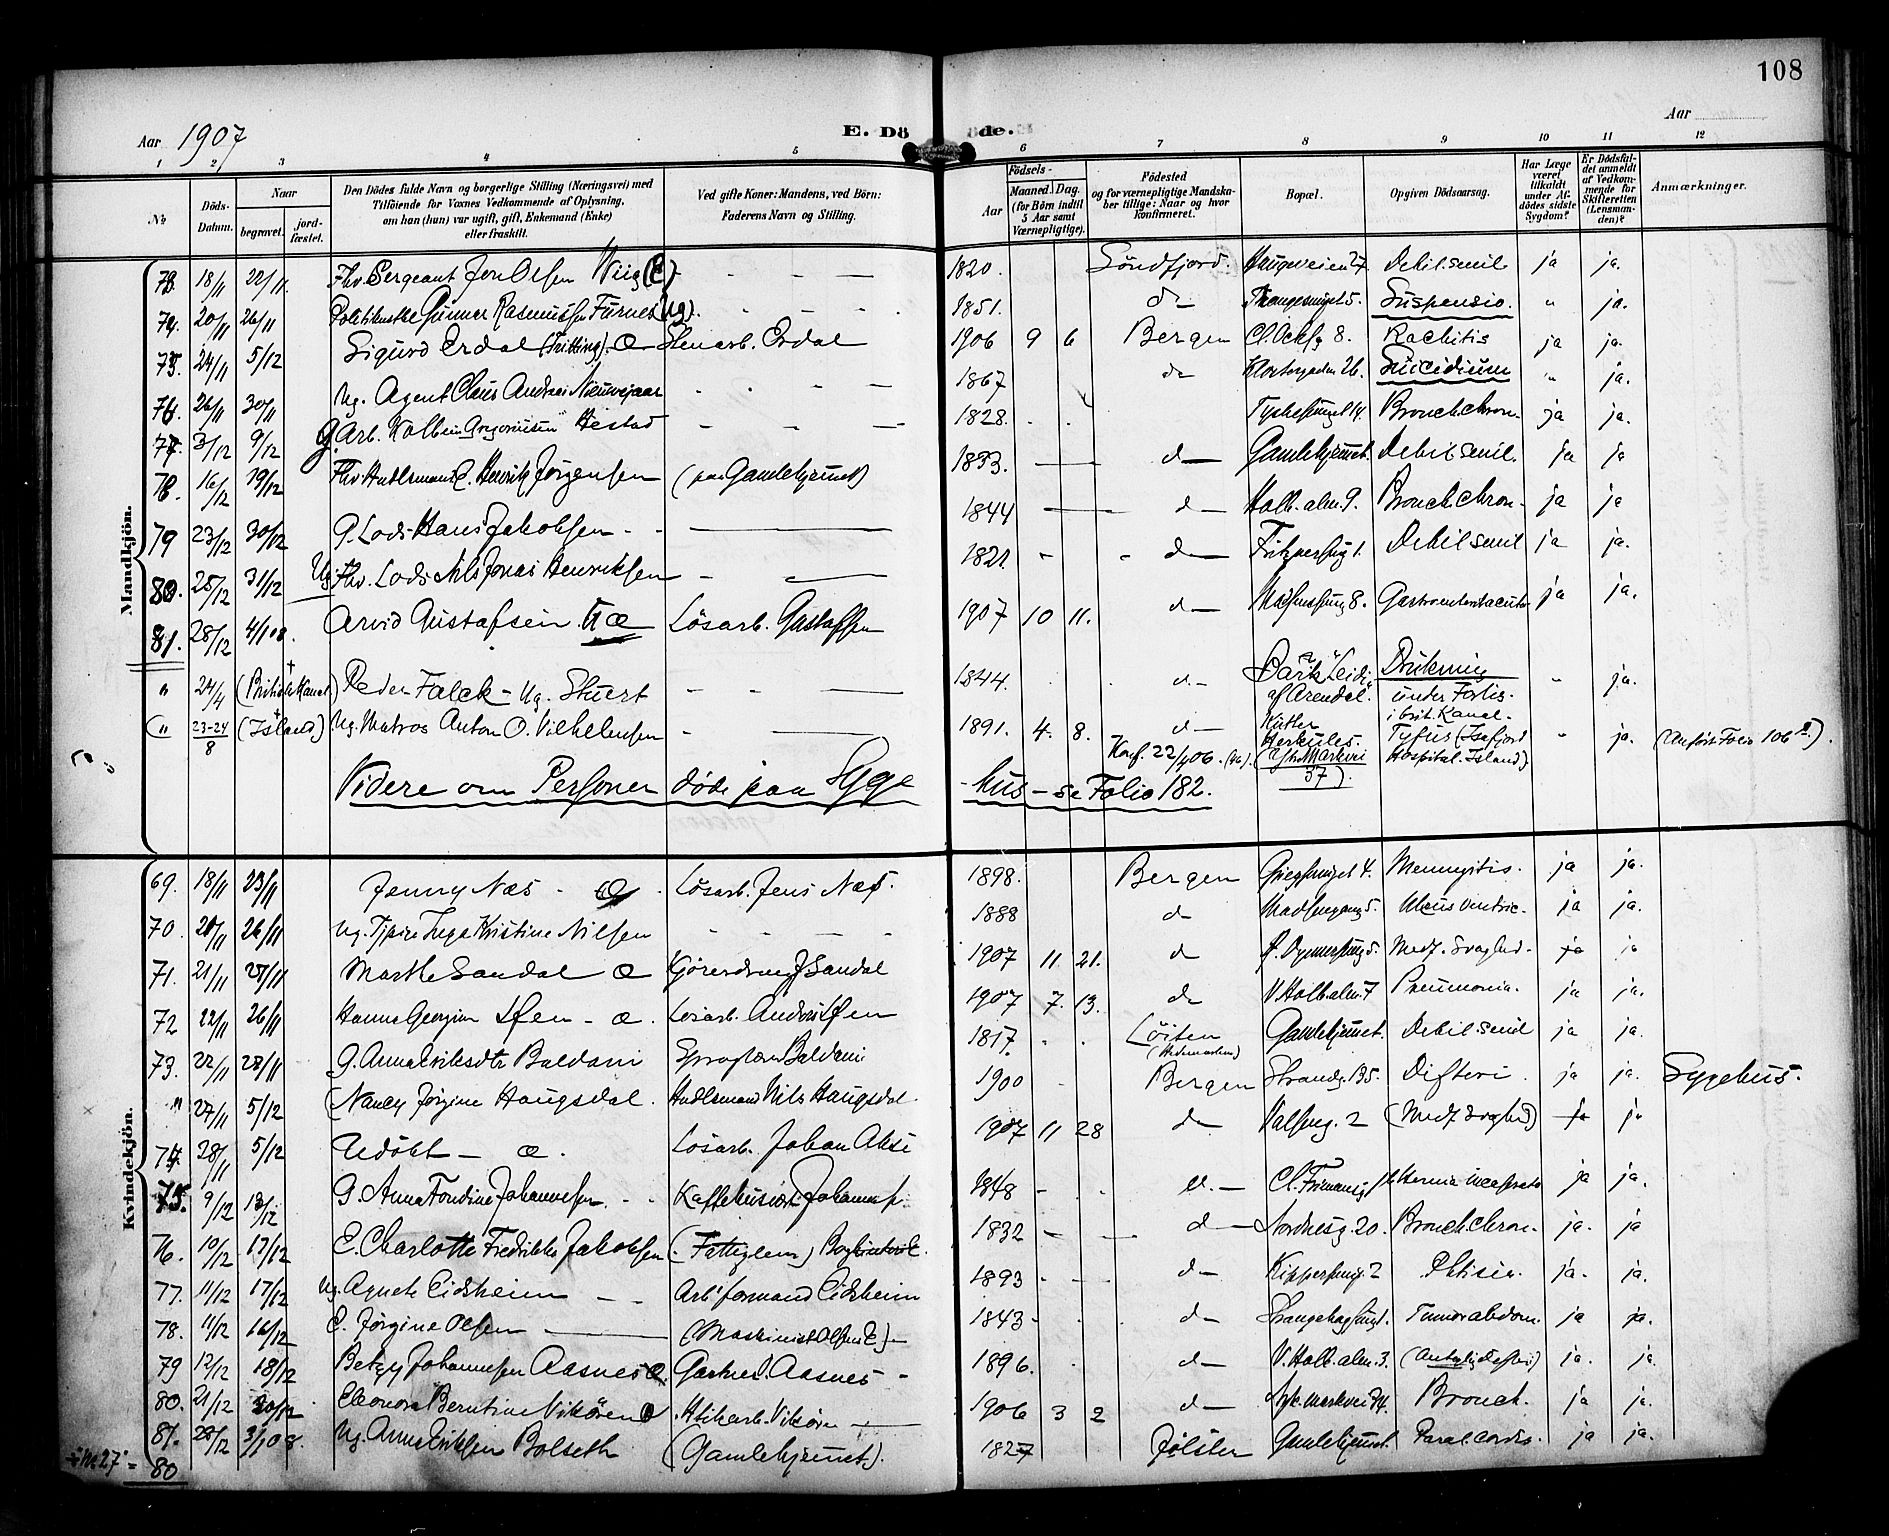 108
Aar 1907 E. Döde. Aar
1 2 3 4 5 6 7 8 9 10 11 12
No. Döds-Datum. Naar begravet. jordfæstet. Den Dödes fulde Navn og borgerlige Stilling (Næringsvei) med Tilföiende for Voxnes Vedkommende af Oplysning, om han (hun) var ugift, gift, Enkemand (Enke) eller fraskilt. Ved gifte Koner: Mandens, ved Börn: Faderens Navn og Stilling. Födsels- Aar Maaned. Dag. (for Börn indtil 5 Aar samt Værnepligtige). Födested og for værnepligtige Mandskaber tillige: Naar og hvor konfirmeret. Bopæl. Opgiven Dödsaarsag. Har Læge været tilkaldt under Afdödes sidste Sygdom? Er Dödsfaldet anmeldt af Vedkommende for Skifteretten (Lensmanden)? Anmærkninger.
Mandkjön.
73. 18/11 22/11. Fhv. Sergeant Jon Olsen Wiig (E) - - — 1820. Söndfjord. Haugeveien 27 Debil. senil ja ja.
74. 20/11 26/11 Gunnar Rasmussen Furnes (Ug). 1851. do 5. Suspensio. " ja.
75. 24/11 5/12 Sigurd Erdal (Tvilling). Æ Stenarb. Erdal 1906 9 6 Bergen 8. Rachitis ja ja.
76. 26/11 30/11 Ug. Agent Claus Andreas Nieuwejaar 1867 do Klostergaden 26. Suicidium " ja.
77. 3/12 9/12 G. Arb. Kolbein Gregoriussen Hestad 1828. Bronch. chron. ja ja.
78. 16/12 19/12 Fhv Hndlsmand E. Henrik Jörgensen (paa Gamlehjemmet) 1833. do Gamlehjemmet. Debil. senil. ja ja
79 23/12 30/12 G. Lods Hans Jakobsen 1844 do Holb. alm. 9. Bronch. chron. ja ja
80. 25/12 31/12 Ug. Fhv. Lods Nils Jonas Henriksen 1821. do 1. Debil senil ja ja.
81. 28/12 4/1 08. Arvid Gustafsen. U Æ Lösarb. Gustafsen 1907 10 11. do 8. Gastroenterit acuta ja ja.
" 24/4 (Britiske Kanal) Peder Falck - Ug. Stuert 1844. do Bark "Leidi" af Arendal. Drukning under Forlis. i brit. Kanal. " ja.
" 23-24/8 (Island) Ug. Matros Anton O. Vilhelmsen 1891. 4. 8. do Konf. 22/4 06. Kutter Herkules. (Ytre Markvei 37). Tyfus (Isefjord Hospital. Island) " ja. (Anført Folio 106).
Videre om Personer döde paa Syge-hus - se Folio 182.
Kvindekjön.
69. 18/11 23/11 Jenny Næs - Æ. Lösarb. Jens Næs. 1898. Bergen 4. Meningitis. ja ja.
70. 20/11 26/11 Ug. Inga Kristine Nilsen 1888 do 5. Ulcus ventric. ja ja.
71. 21/11 27/11 Marthe Sandal Æ Sandal 1907 11 21. do 5. Medf. Svaghed. ja ja
72 22/11 26/11 Hanna Georgine - Æ. Lösarb. 1907 7. 13. do V. Holb. alm. 7 Pneumonia. ja ja.
73. 22/11 28/11 G. Anna Eriksdtr Baldani Baldani 1817. Löiten (Hedemarken) Gamlehjemmet. Debil. senil ja ja.
" 27/11 5/12 (Nancy Jörgine Haugsdal. Hndlsmand Nils Haugsdal. 1900 Bergen Strandg. 135. Difteri. ja ja. Sygehus.
74 28/11 5/12 Udöbt - Æ. Lösarb. Johan 1907 11 28 do 2 (Medf Svaghed) ja ja
75. 9/12 13/12 G. Anna Johannesen. Johannesen 1848 do ja ja.
76. 10/12 17/12 E. Charlotte Fredrikke Jakobsen (Fattiglem) 1832 do Nordnesg. 20. Bronch. chron. ja. ja
77. 11/12 17/12 Ug. Agnete Eidsheim Arb. formand Eidsheim 1893 do 2 Phtisis. ja. ja.
78. 11/12 16/12 E. Jörgine Olsen (Maskinist Olsen E) 1843 do Tumor abdom. ja ja.
79 12/12 18/12 Betzy Johannesen Aasnes Æ. Aasnes 1896. do V. Holb. alm. 3. (Difteri) ja. ja.
80. 21/12 30/12. Eleonora Berntine Vikören Vikören 1906 3 2 do Bronch. ja ja
81. 28/12 3/1 08. Ug. Anna Eriksen Bolseth (Gamlehjemmet). 1827 Jölster Gamlehjemmet. Paral. cordis. ja ja.
÷ No 27 = 80